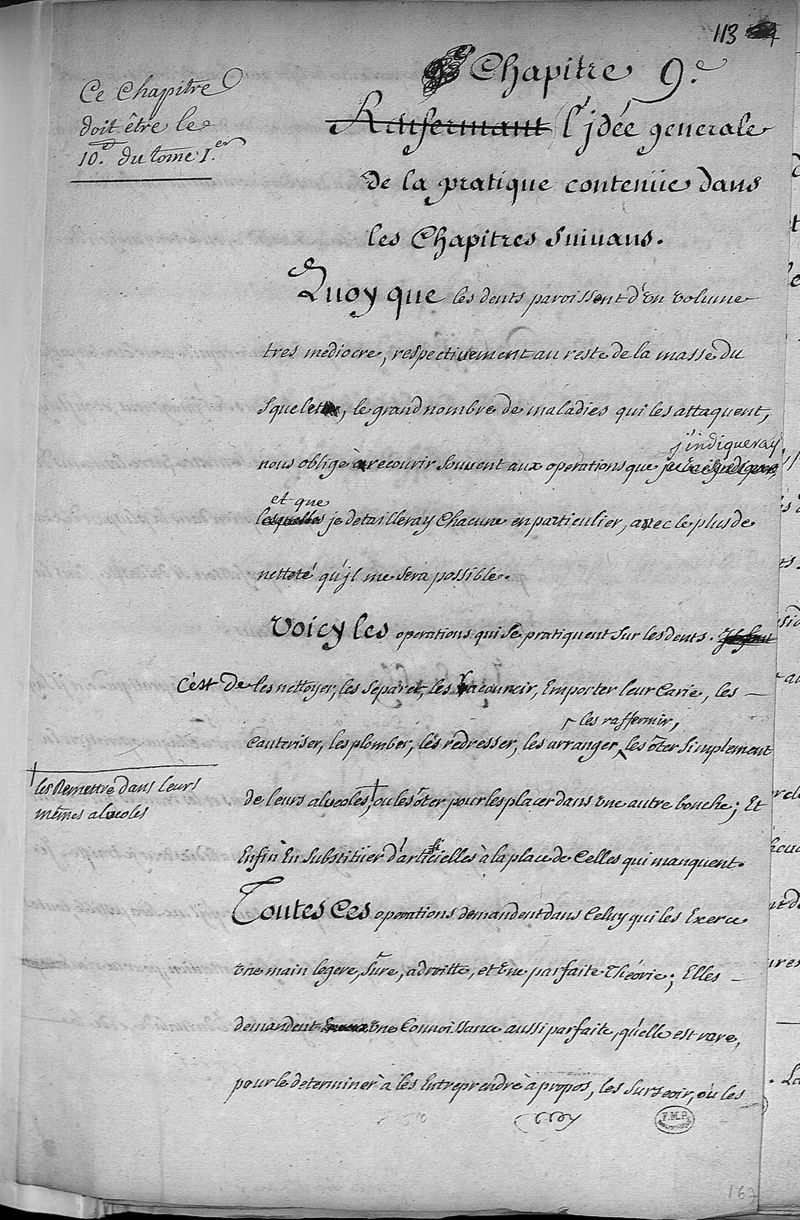 113
Chapitre 9.e
Ce Chapitre
doit être le
10.e du tome I.er
Renfermant l'jdée generale
de la pratique contenüe dans
les Chapitres suiuans.
Quoy que les dents paroissent d'un volume
tres mediocre, respectiuement au reste de la masse du
squelete, le grand nombre de maladies qui les attaquent,
j'indiqueray
nous oblige à recourir souvent aux operations que
et que
lesquelles je detailleray chacune en particulier, avec le plus de
netteté qu'jl me sera possible.
Voicy les operations qui se pratiquent sur les dents.
C'est de les nettoyer, les separer, les racourcir, Emporter leur Carie, les
les raffermir,
Cauteriser, les plomber, les redresser, les arranger, les ôter simplement
les Remettre dans leurs
mêmes alveoles
de leurs alveoles, ou les ôter pour les placer dans une autre bouche; Et
Enfin En substituer d'artificielles à la place de Celles qui manquent.
Toutes Ces operations demandent dans Celuy qui les Exerce
une main legere, sûre, adroitte, et une parfaite Théorie; Elles
demandent une Connoissance aussi parfaite, qu'elle est rare,
pour le determiner à les Entreprendre à propos, les surseoir, où les
F.M.P.
167